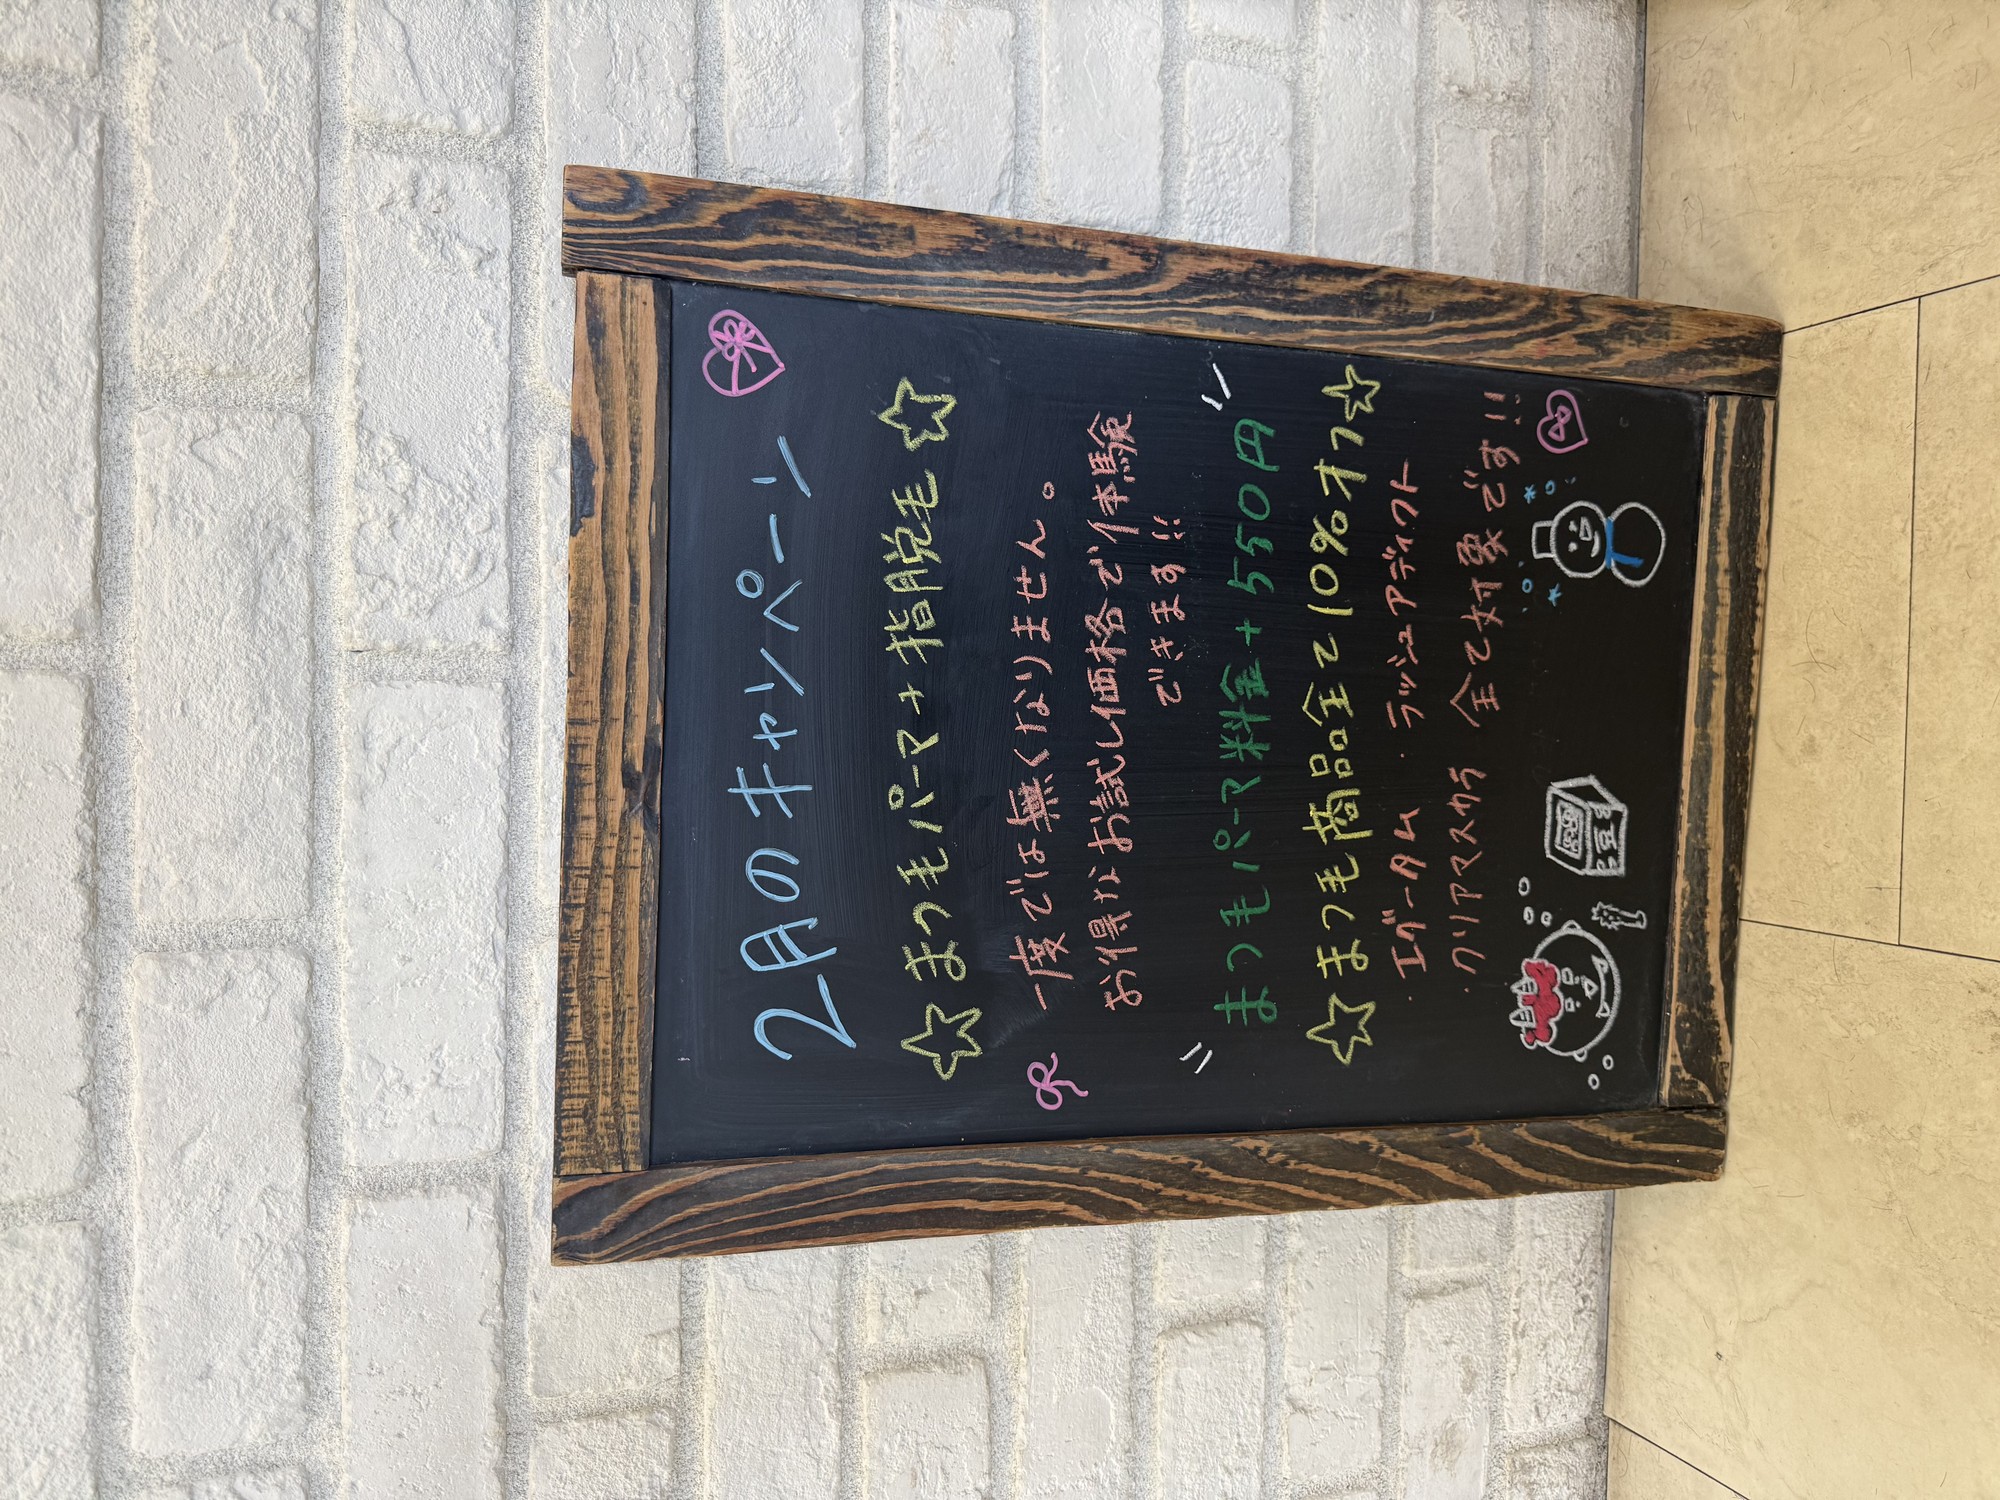 2月のキャンペーン
☆まつ毛パーマ+指脱毛☆
一度では無くなりません。
お得なお試し価格で体験
できます!!
まつ毛パーマ料金+550円
☆まつ毛商品全て10%オフ☆
・エグータム ・ラッシュアディクト
・クリアマスカラ 全て対象です!!
豆